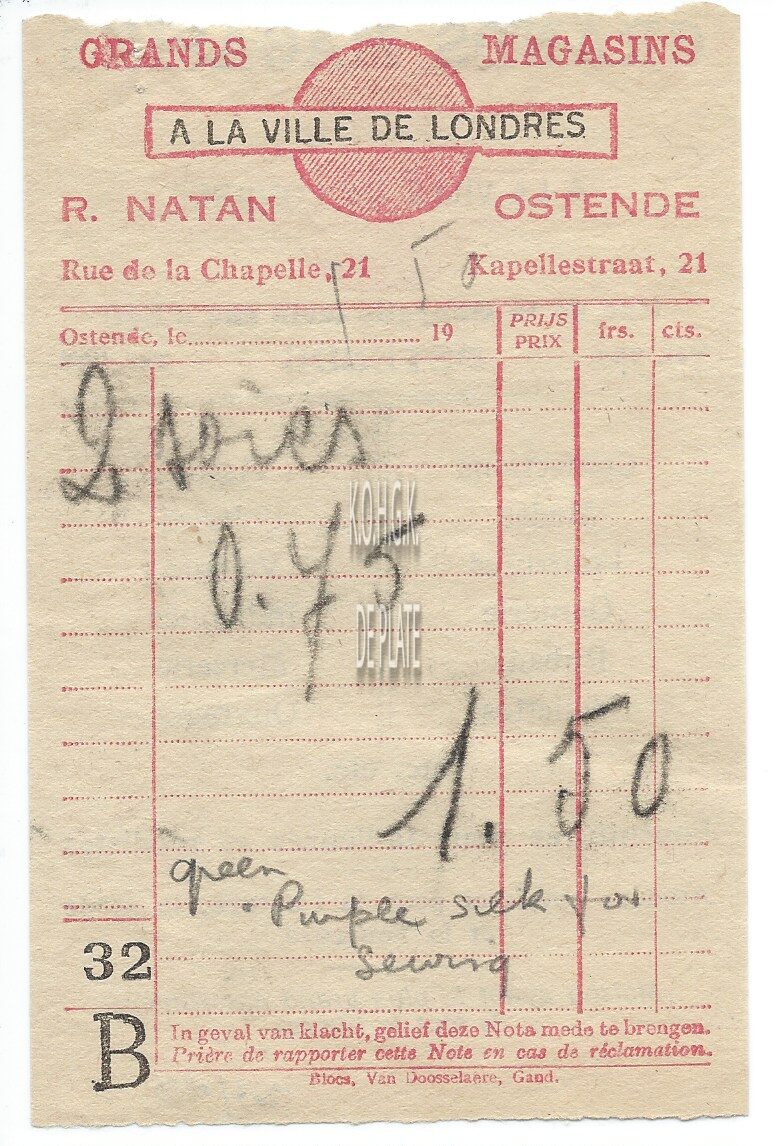 GRANDS MAGASINS
A LA VILLE DE LONDRES
R. NATAN OSTENDE
Rue de la Chapelle, 21 Kapellestraat, 21
1 50
Ostende, le 19 PRIJS PRIX frs. cts.
2 soies
0.75
1.50
green
. Purple silk for
sewing
32
B
In geval van klacht, gelief deze Nota mede te brengen.
Prière de rapporter cette Note en cas de réclamation.
Blocs, Van Doosselaere, Gand.
KOHGK
DEPLATE